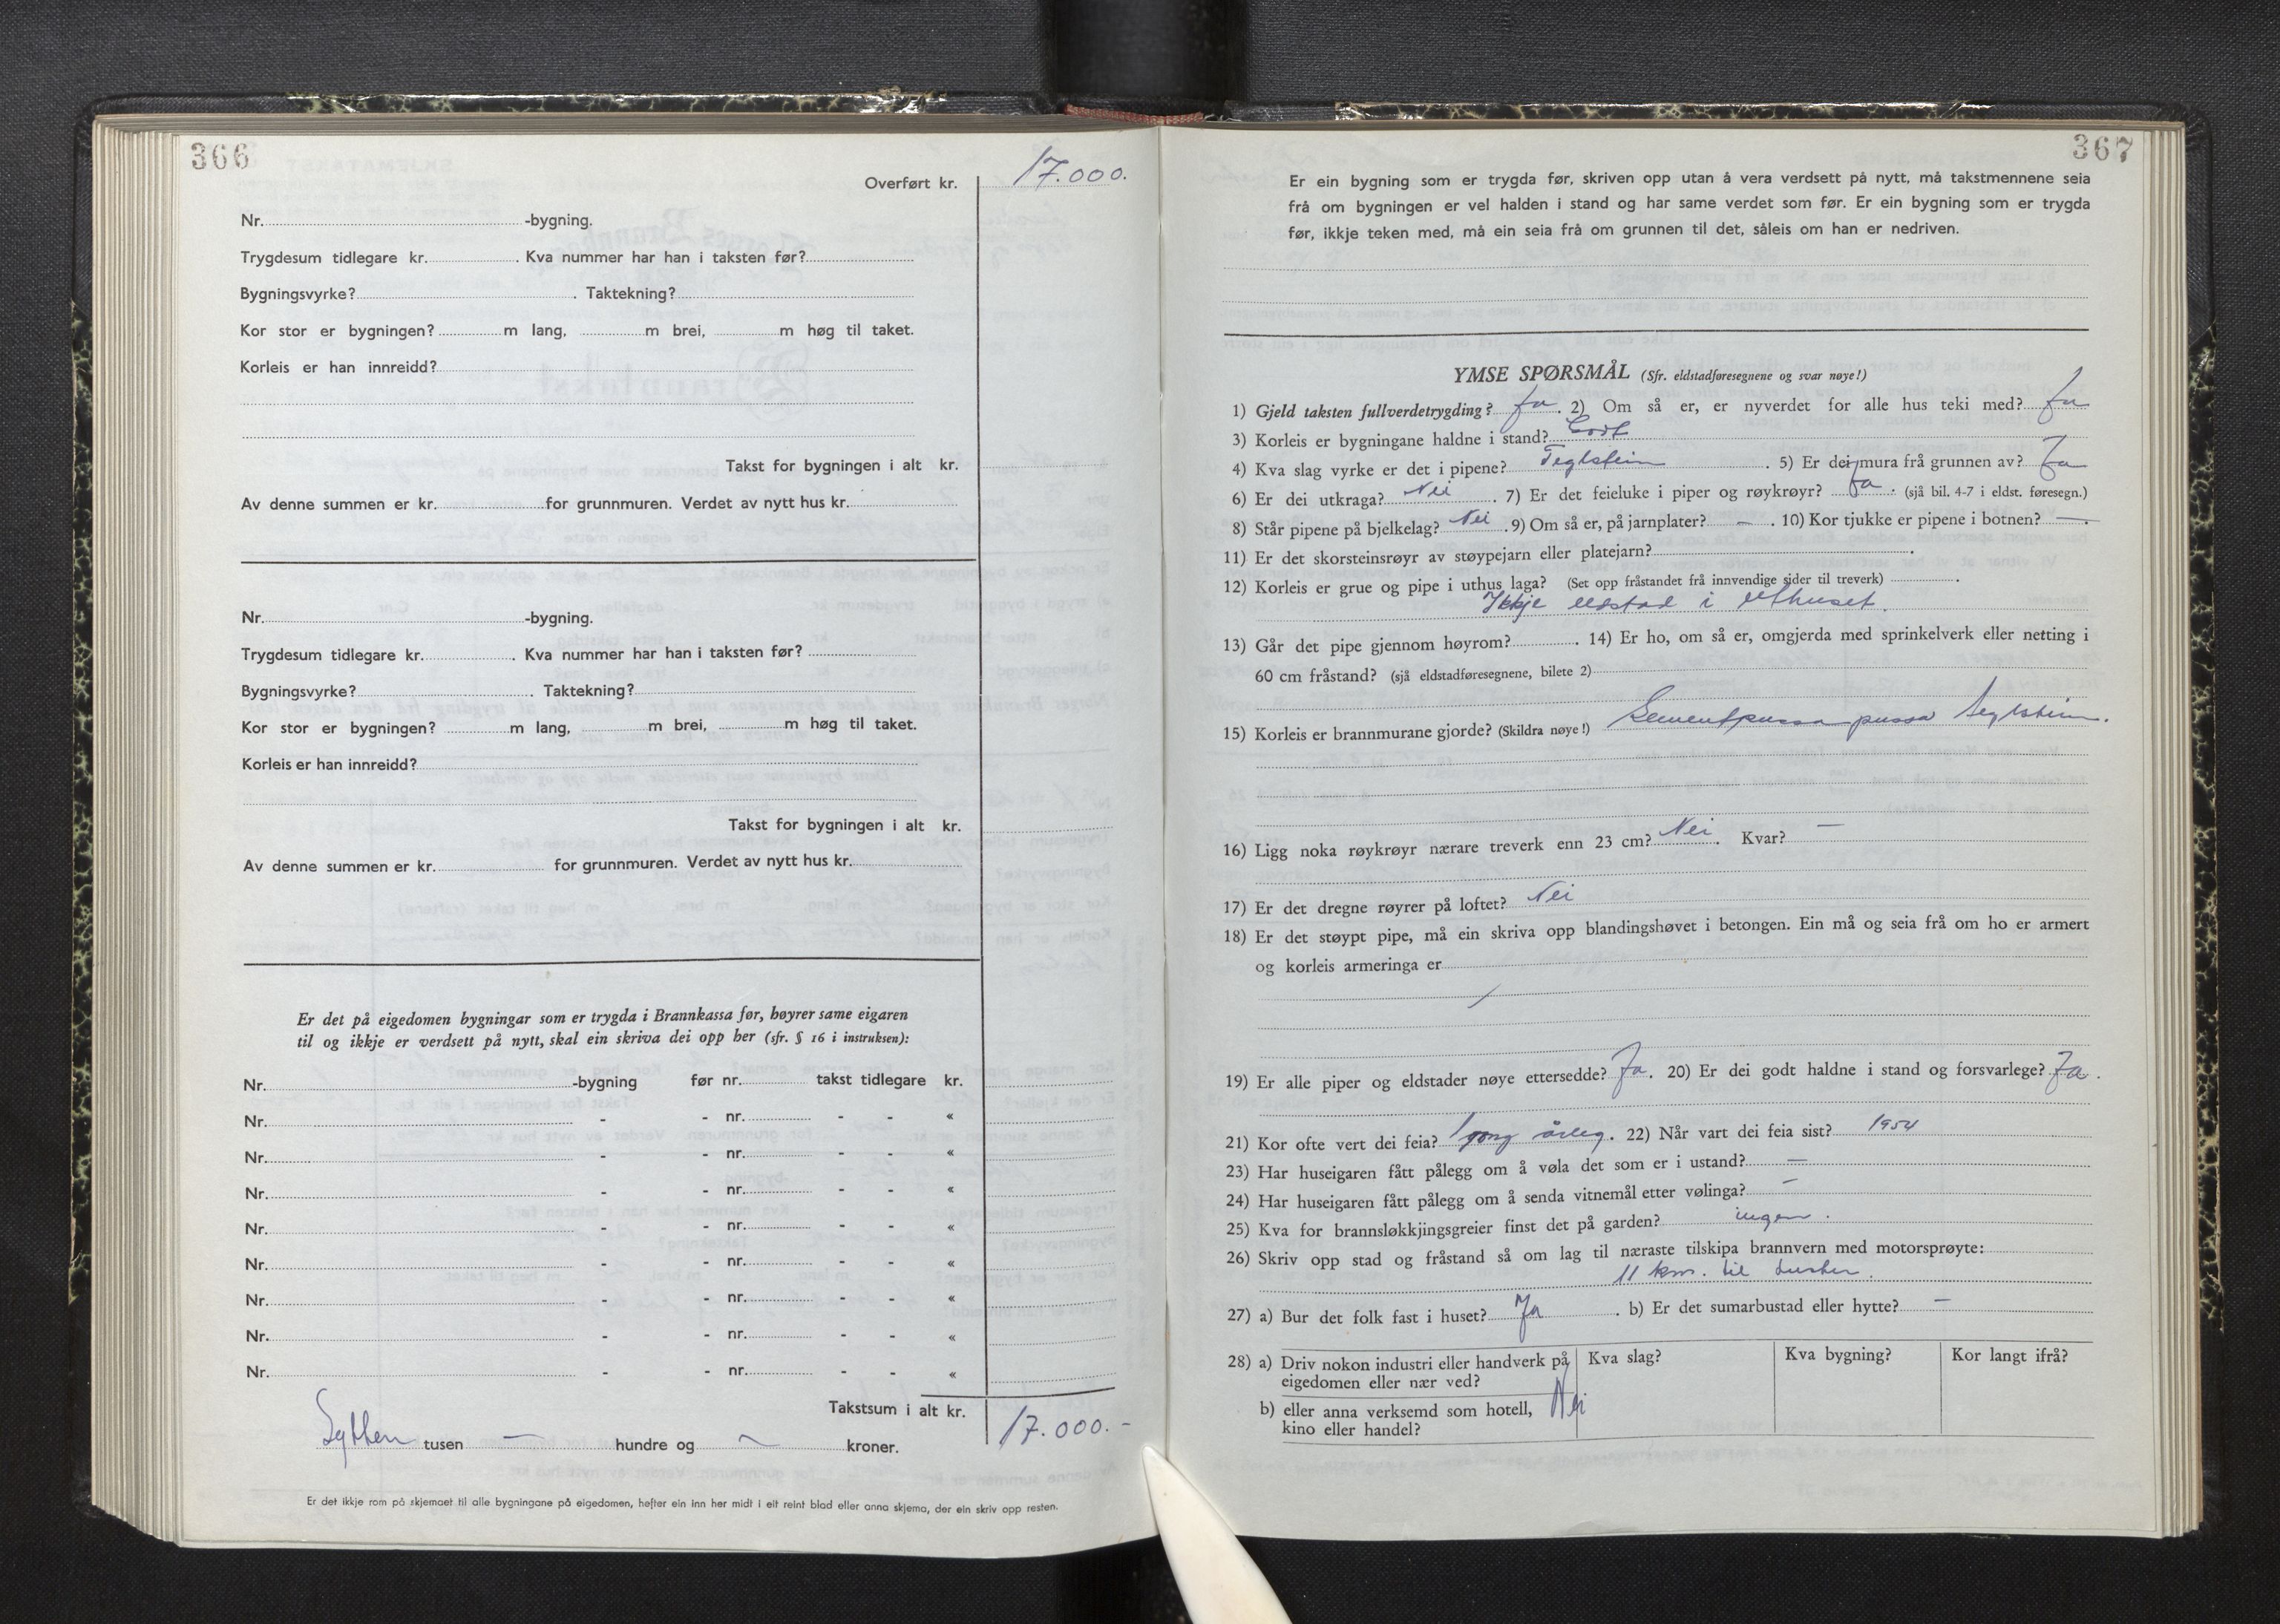 366
Overført kr. 17.000.
Nr. -bygning.
Trygdesum tidlegare kr. . Kva nummer har han i taksten før?
Bygningsvyrke? . Taktekning?
Kor stor er bygningen? m lang, m brei, m høg til taket.
Korleis er han innreidd?
Takst for bygningen i alt kr.
Av denne summen er kr. for grunnmuren. Verdet av nytt hus kr.
Nr. -bygning.
Trygdesum tidlegare kr. . Kva nummer har han i taksten før?
Bygningsvyrke? . Taktekning?
Kor stor er bygningen? m lang, m brei, m høg til taket.
Korleis er han innreidd?
Takst for bygningen i alt kr.
Av denne summen er kr. for grunnmuren. Verdet av nytt hus kr.
Er det på eigedomen bygningar som er trygda i Brannkassa før, høyrer same eigaren
til og ikkje er verdsett på nytt, skal ein skriva dei opp her (sfr. § 16 i instruksen):
Nr. -bygning før nr. takst tidlegare kr.
Nr. - - nr. - - «
Nr. - - nr. - - «
Nr. - - nr. - - «
Nr. - - nr. - - «
Nr. - - nr. - - «
Nr. - - nr. - - «
Nr. - - nr. - - «
Nr. - - nr. - - «
Takstsum i alt kr. 17.000.-
Sytten tusen — hundre og ~ kroner.
Er det ikkje rom på skjemaet til alle bygningane på eigedomen, hefter ein inn her midt i eit reint blad eller anna skjema, der ein skriv opp resten.
367
Er ein bygning som er trygda før, skriven opp utan å vera verdsett på nytt, må takstmennene seia
frå om bygningen er vel halden i stand og har same verdet som før. Er ein bygning som er trygda
før, ikkje teken med, må ein seia frå om grunnen til det, såleis om han er nedriven.
YMSE SPØRSMÅL (Sfr. eldstadføresegnene og svar nøye!)
1) Gjeld taksten fullverdetrygding? Ja . 2) Om så er, er nyverdet for alle hus teki med? Ja
3) Korleis er bygningane haldne i stand? Godt
4) Kva slag vyrke er det i pipene? Teglstein . 5) Er dei mura frå grunnen av? Ja
6) Er dei utkraga? Nei . 7) Er det feieluke i piper og røykrøyr? Ja . (sjå bil. 4-7 i eldst. føresegn.)
8) Står pipene på bjelkelag? Nei . 9) Om så er, på jarnplater? — . 10) Kor tjukke er pipene i botnen? — .
11) Er det skorsteinsrøyr av støypejarn eller platejarn? .
12) Korleis er grue og pipe i uthus laga? (Set opp fråstandet frå innvendige sider til treverk) .
Ikkje eldstad i uthuset.
13) Går det pipe gjennom høyrom? . 14) Er ho, om så er, omgjerda med sprinkelverk eller netting i
60 cm fråstand? (sjå eldstadføresegnene, bilete 2)
15) Korleis er brannmurane gjorde? (Skildra nøye!) Sementpussa pussa teglstein.
16) Ligg noka røykrøyr nærare treverk enn 23 cm? Nei . Kvar? —
17) Er det dregne røyrer på loftet? Nei
18) Er det støypt pipe, må ein skriva opp blandingshøvet i betongen. Ein må og seia frå om ho er armert
og korleis armeringa er
19) Er alle piper og eldstader nøye ettersedde? Ja . 20) Er dei godt haldne i stand og forsvarlege? Ja .
21) Kor ofte vert dei feia? 1 gong årleg . 22) Når vart dei feia sist? 1954
23) Har huseigaren fått pålegg om å vøla det som er i ustand? —
24) Har huseigaren fått pålegg om å senda vitnemål etter vølinga? —
25) Kva for brannsløkkjingsgreier finst det på garden? ingen .
26) Skriv opp stad og fråstand så om lag til næraste tilskipa brannvern med motorsprøyte:
11 km. til Luster .
27) a) Bur det folk fast i huset? Ja . b) Er det sumarbustad eller hytte? —
28) a) Driv nokon industri eller handverk på Kva slag? Kva bygning? Kor langt ifrå?
eigedomen eller nær ved?
b) eller anna verksemd som hotell, Nei
kino eller handel?